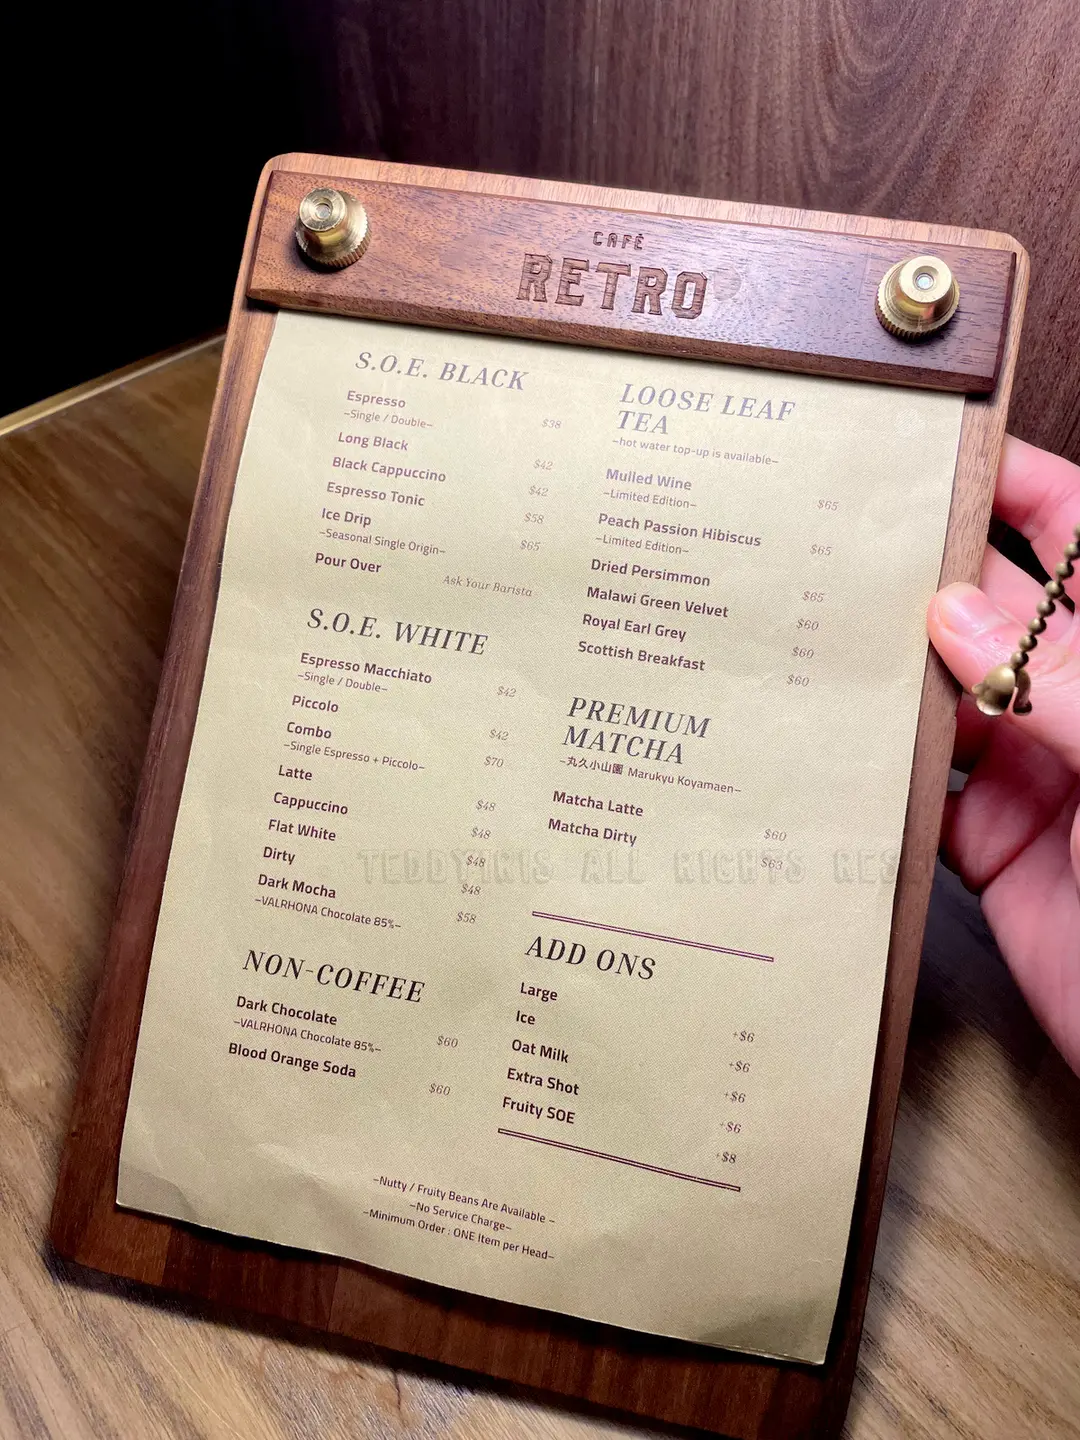 CAFÈ
RETRO
S.O.E. BLACK
Espresso
~Single / Double~ $38
Long Black $42
Black Cappuccino $42
Espresso Tonic $58
Ice Drip
~Seasonal Single Origin~ $65
Pour Over Ask Your Barista
S.O.E. WHITE
Espresso Macchiato
~Single / Double~ $42
Piccolo $42
Combo
~Single Espresso + Piccolo~ $70
Latte $48
Cappuccino $48
Flat White $48
Dirty $48
Dark Mocha
~VALRHONA Chocolate 85%~ $58
NON-COFFEE
Dark Chocolate
~VALRHONA Chocolate 85%~ $60
Blood Orange Soda $60
LOOSE LEAF
TEA
~hot water top-up is available~
Mulled Wine
~Limited Edition~ $65
Peach Passion Hibiscus
~Limited Edition~ $65
Dried Persimmon $65
Malawi Green Velvet $60
Royal Earl Grey $60
Scottish Breakfast $60
PREMIUM
MATCHA
~丸久小山園 Marukyu Koyamaen~
Matcha Latte $60
Matcha Dirty $63
ADD ONS
Large +$6
Ice +$6
Oat Milk +$6
Extra Shot +$6
Fruity SOE +$8
~Nutty / Fruity Beans Are Available ~
~No Service Charge~
~Minimum Order : ONE Item per Head~
TEDDYIRIS ALL RIGHTS